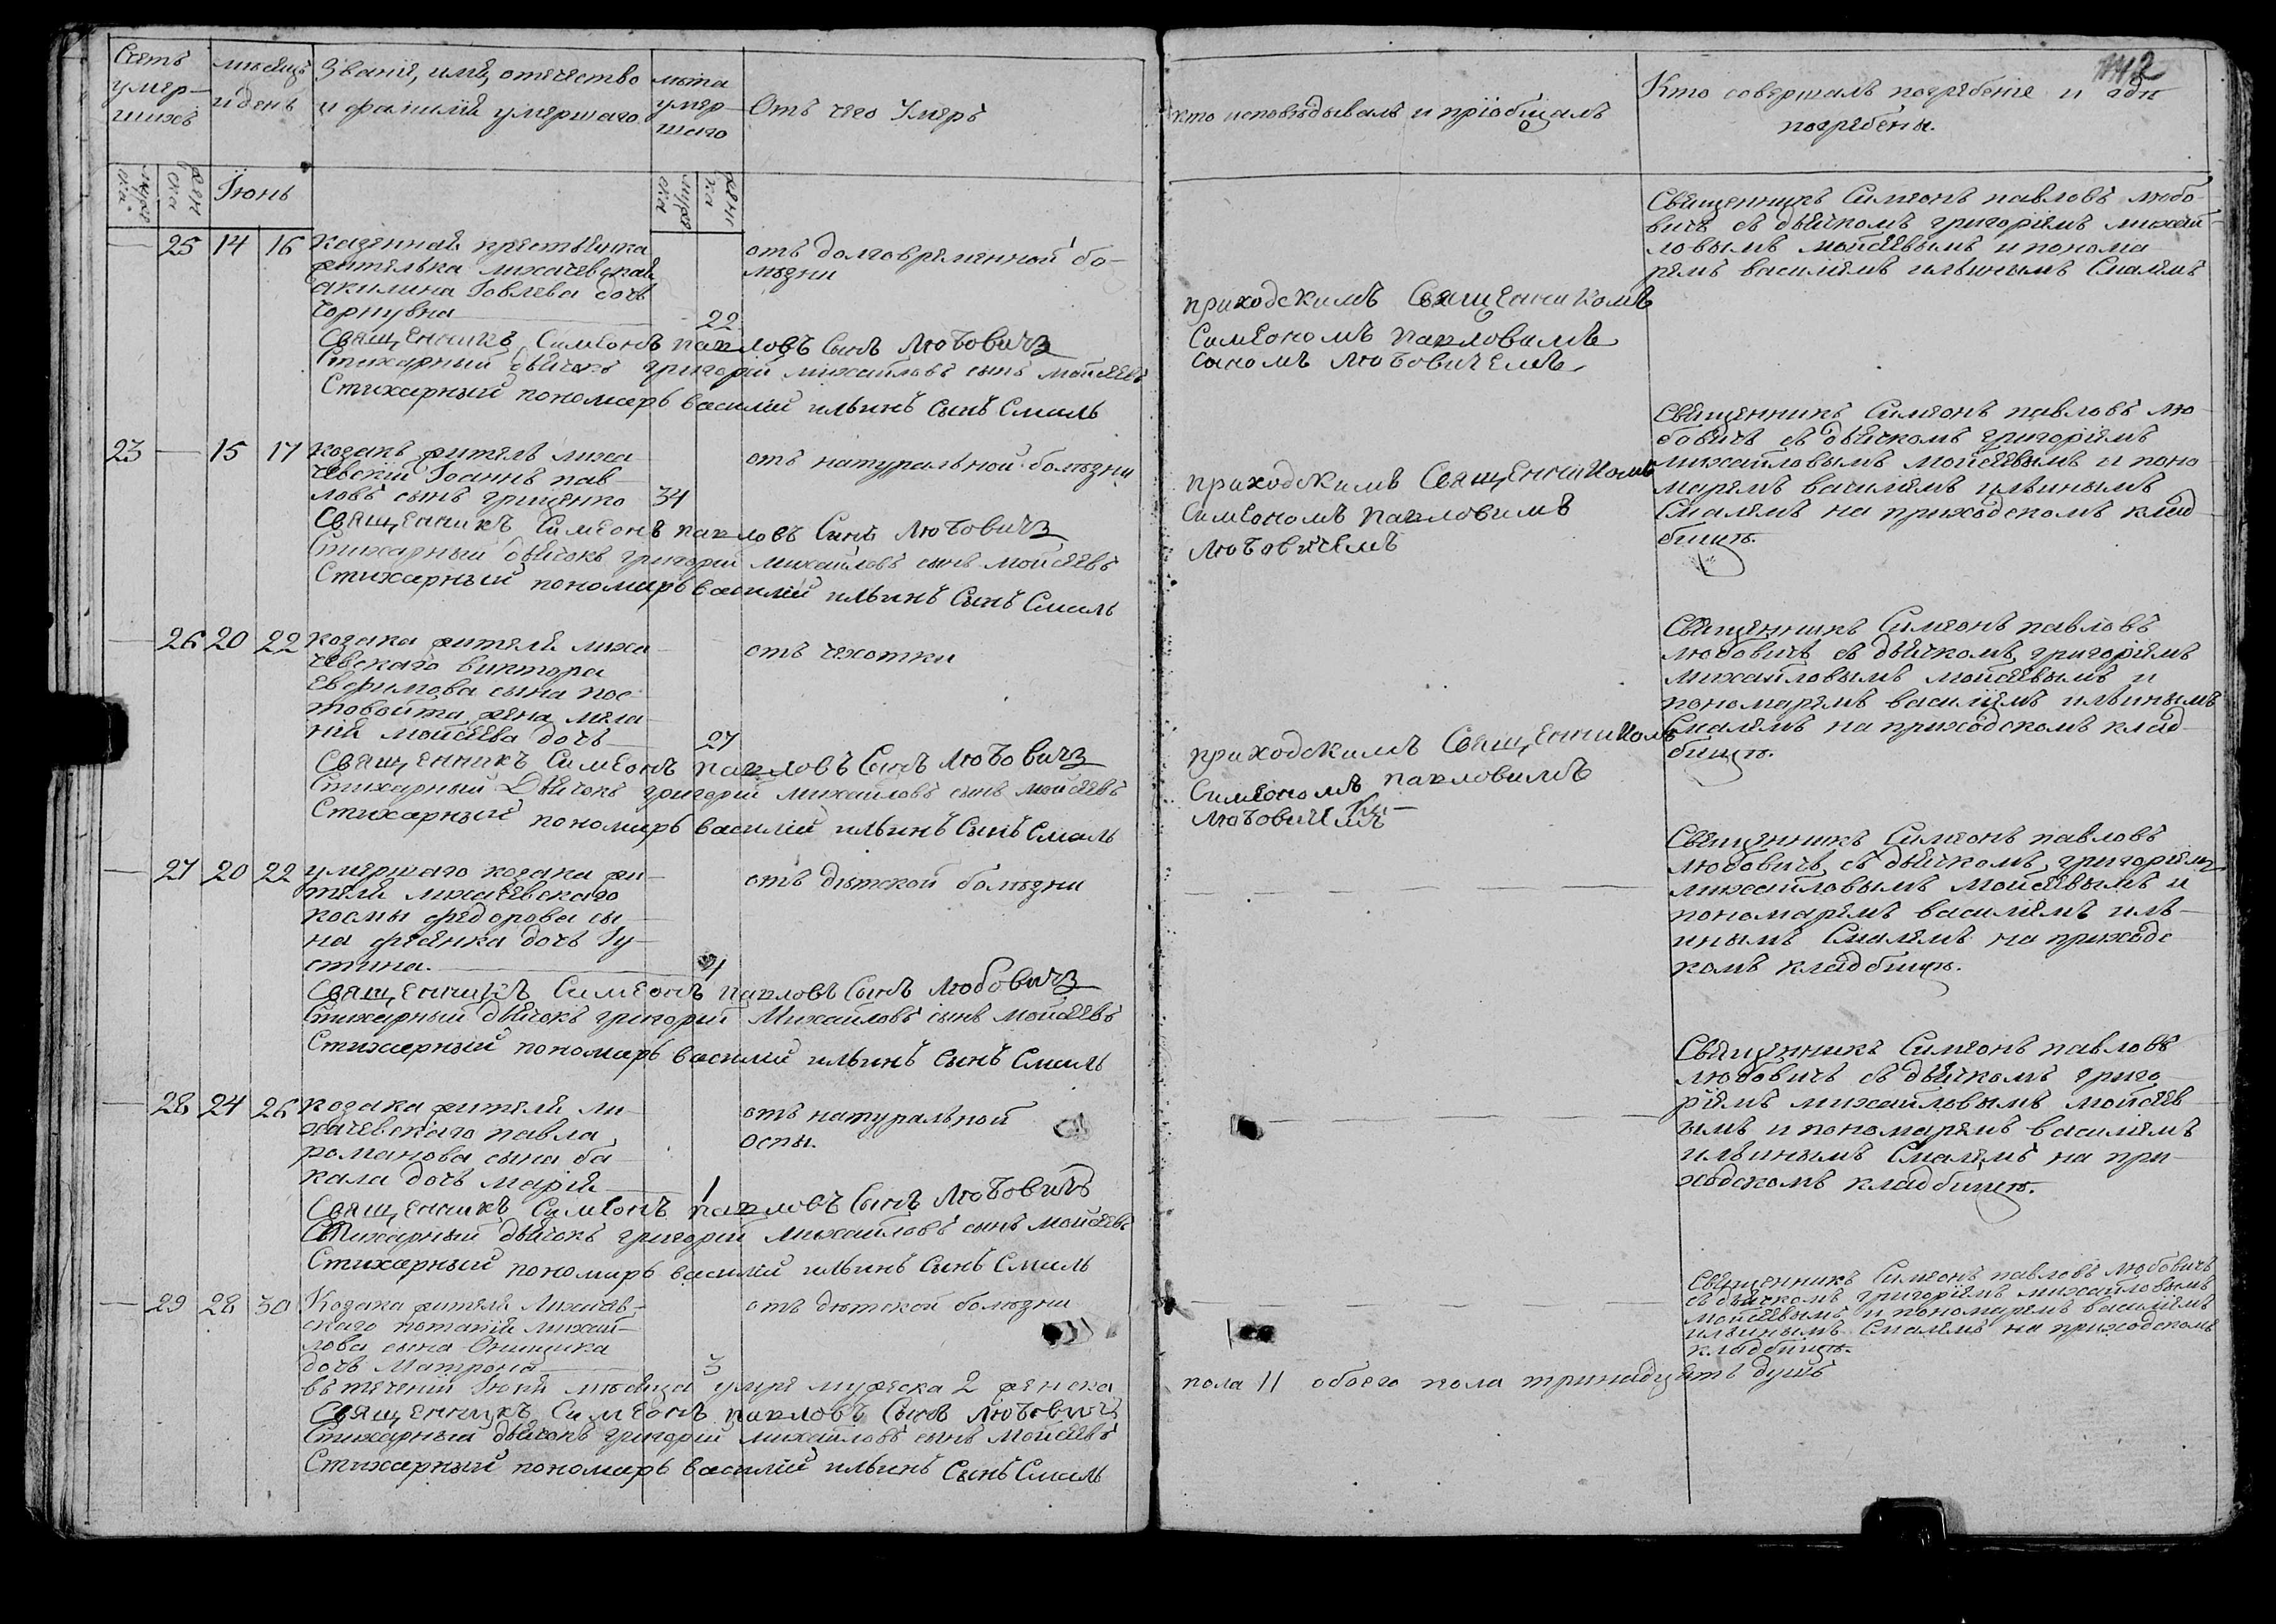 Счетъ умер-шихъ
мѣсяцъ и день
Званіе, имя, отечество
и фамилія умершаго
лѣта умер-шаго
Отъ чего Умеръ
Кто исповѣдывалъ и пріобщалъ
Кто совершалъ погребеніе и гдѣ
погребены.
142
мужеска
женска
Іюнь
мужеска
женска
25 14 16 казенная крестьянка
жителька лихачевская
акилина Іовлева дочь
Чорнувна 22
отъ долговременной бо-
лѣзни
приходскимъ Священникомъ
Симеономъ Павловимъ
сыномъ Любовичемъ
Священникъ Симеонъ павловъ любо-
вичъ съ дьячкомъ григоріемъ михай-
ловымъ мойсеевымъ и понома-
ремъ василіемъ ильинымъ Смалемъ
Священникъ Симеонъ павловъ Сынъ Любовичъ
Стихарный дьячокъ григорій михайловъ сынъ мойсеевъ
Стихарный пономарь василий ильинъ Сынъ Смаль
23 15 17 козакъ житель лиха-
чевскій Іоаннъ пав-
ловъ сынъ грищенко 34
отъ натуральной болѣзни
приходскимъ Священникомъ
Симеономъ Павловимъ
Любовичемъ
Священникъ Симеонъ павловъ лю-
бовичъ съ дьячкомъ григоріемъ
михайловымъ мойсеевымъ и поно
маремъ василіемъ ильинымъ
Смалемъ на приходскомъ клад-
бищѣ.
Священникъ Симеонъ павловъ Синъ Любовичъ
Стихарный дьячокъ григорій михайловъ сынъ мойсеевъ
Стихарный пономарь василий ильинъ Сынъ Смаль
26 20 22 козака жителя лиха-
чевскаго виктора
Евфимова сына пос-
товойта жена мела-
нія мойсеева дочь 27
отъ чехотки
приходскимъ Священникомъ
Симеономъ Павловимъ
Любовичемъ
Священникъ Симеонъ павловъ
любовичъ съ дьячкомъ григоріемъ
михайловымъ мойсеевымъ и
пономаремъ василіемъ ильинымъ
Смалемъ на приходскомъ клад-
бищѣ.
Священникъ Симеонъ павловъ Сынъ Любовичъ
Стихарный Дьячокъ григорій михайловъ сынъ мойсеевъ
Стихарный пономарь василий ильинъ Сынъ Смаль
27 20 22 умершаго козака жи-
теля лихачевскаго
космы федорова сы-
на фесенка дочь Іу-
стина.
отъ дѣтской болѣзни
Священникъ Симеонъ павловъ
любовичъ съ дьячкомъ григоріемъ
михайловымъ мойсеевымъ и
пономаремъ василіемъ иль-
инымъ Смалемъ на приходс
комъ кладбищѣ.
Священникъ Симеонъ павловъ Сынъ Любовичъ
Стихарный дьячокъ григорий Михайловъ сынъ мойсеевъ
Стихарный пономарь василий ильинъ Сынъ Смаль
28 24 26 козака жителя ли-
хачевскаго павла
романова сына ба-
кала дочь марія 1
отъ натуральной
оспы.
Священникъ Симеонъ павловъ
любовичъ съ дьячкомъ григо-
ріемъ михайловымъ мойсеев-
ымъ и пономаремъ василіемъ
ильинымъ Смалемъ на при-
ходскомъ кладбищѣ.
Священникъ Симеонъ павловъ Сынъ Любовичъ
Стихарный дьячокъ григорій михайловъ сынъ мойсеевъ
Стихарный пономарь василий ильинъ Сынъ Смаль
29 28 30 Козака жителя Лихачев-
скаго потапія михай-
лова сына Онищика
дочь Матрона 3
отъ дѣтской болѣзни
Священникъ Симеонъ павловъ любовичъ
съ дьячкомъ григоріемъ михайловымъ
мойсеевымъ и пономаремъ василіемъ
ильинымъ Смалемъ на приходскомъ
кладбищѣ.
въ теченіи Іюня мѣсяца умре мужеска 2 женска пола 11 обоего пола тринадцять душъ
Священникъ Симеонъ павловъ Сынъ Любовичъ
Стихарный дьячокъ григорий михайловъ сынъ Мойсеевъ
Стихарный пономарь василий ильинъ Сынъ Смаль